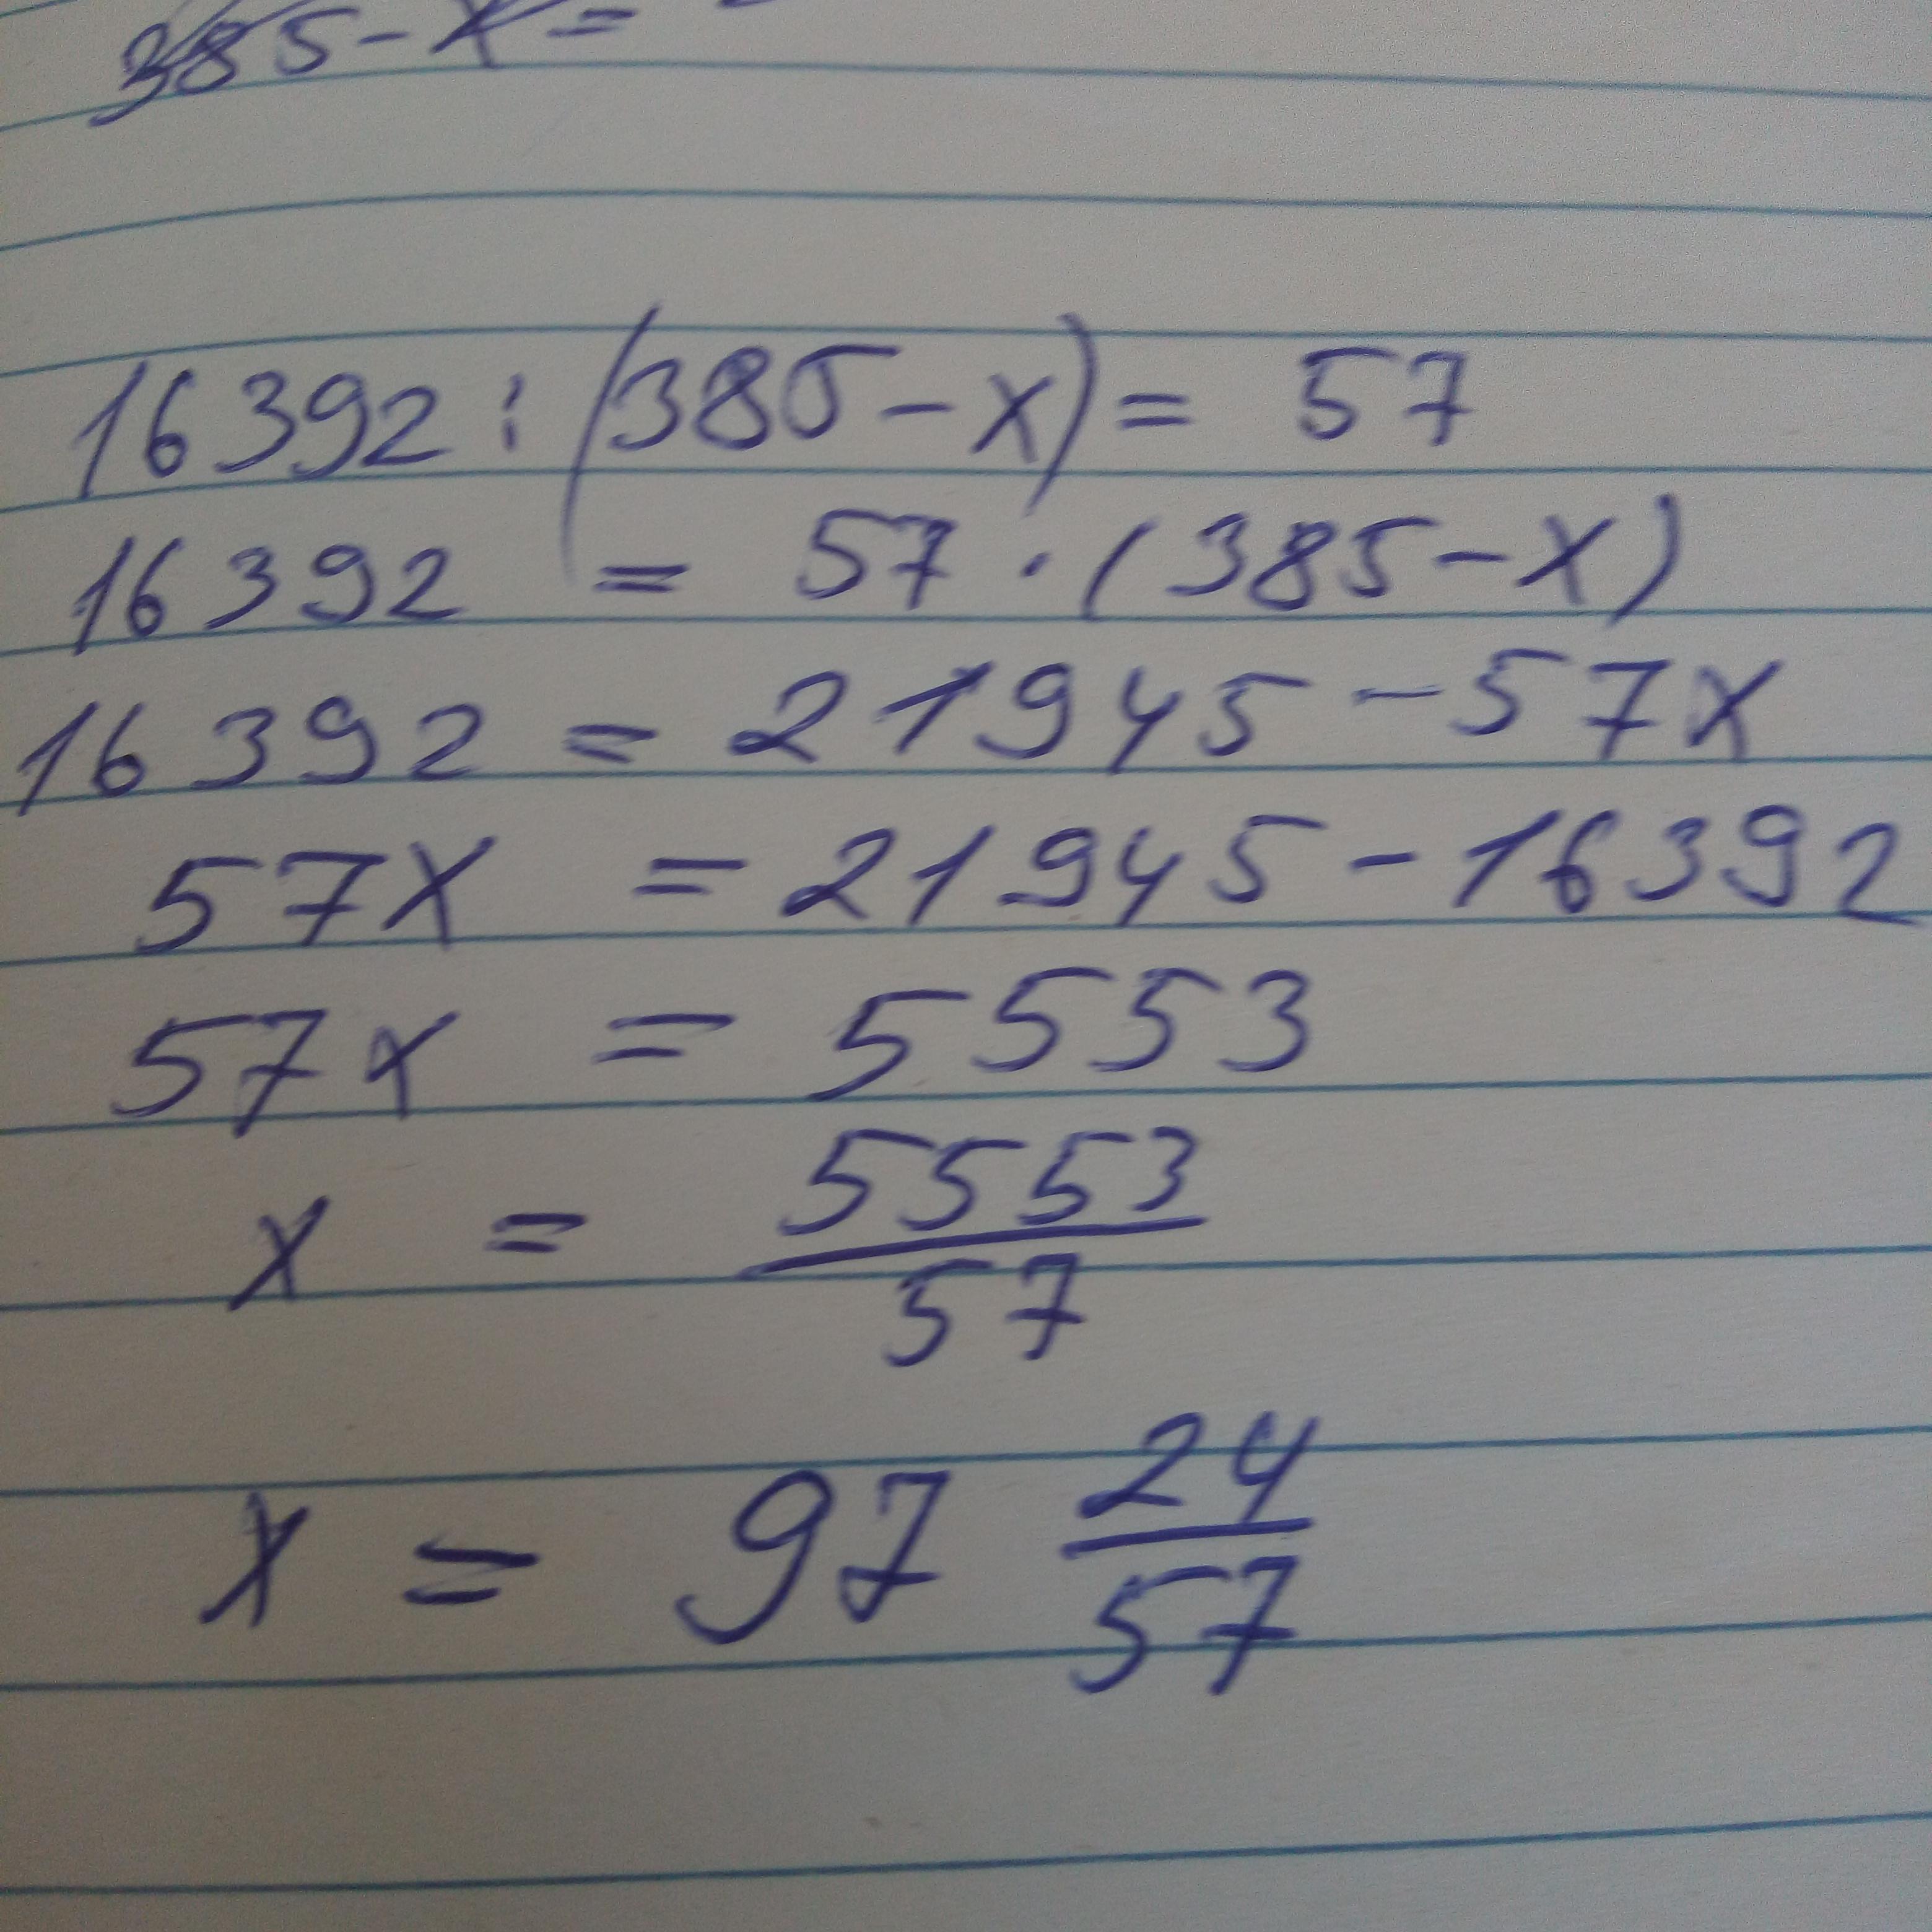 385 - x =
16392 : (385 - x) = 57
16392 = 57 · (385 - x)
16392 = 21945 - 57x
57x = 21945 - 16392
57x = 5553
x = 5553/57
x = 97 24/57